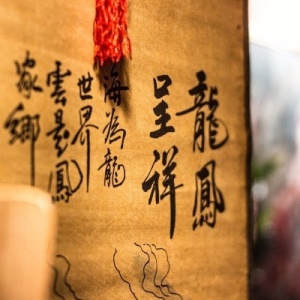 龍鳳
呈祥
海為龍
世界
雲是鳳
家鄉